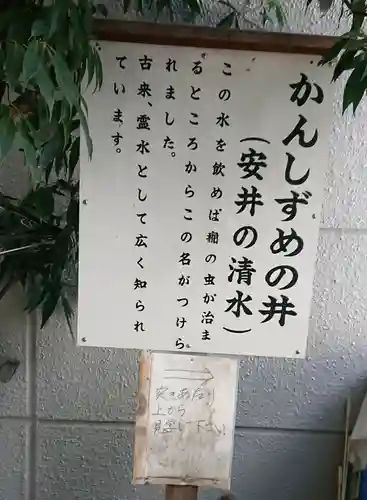 かんしずめの井
（安井の清水）
この水を飲めば癇の虫が治ま
るところからこの名がつけら
れました。
古来、霊水として広く知られ
ています。
突きあたり
上から
見て下さい